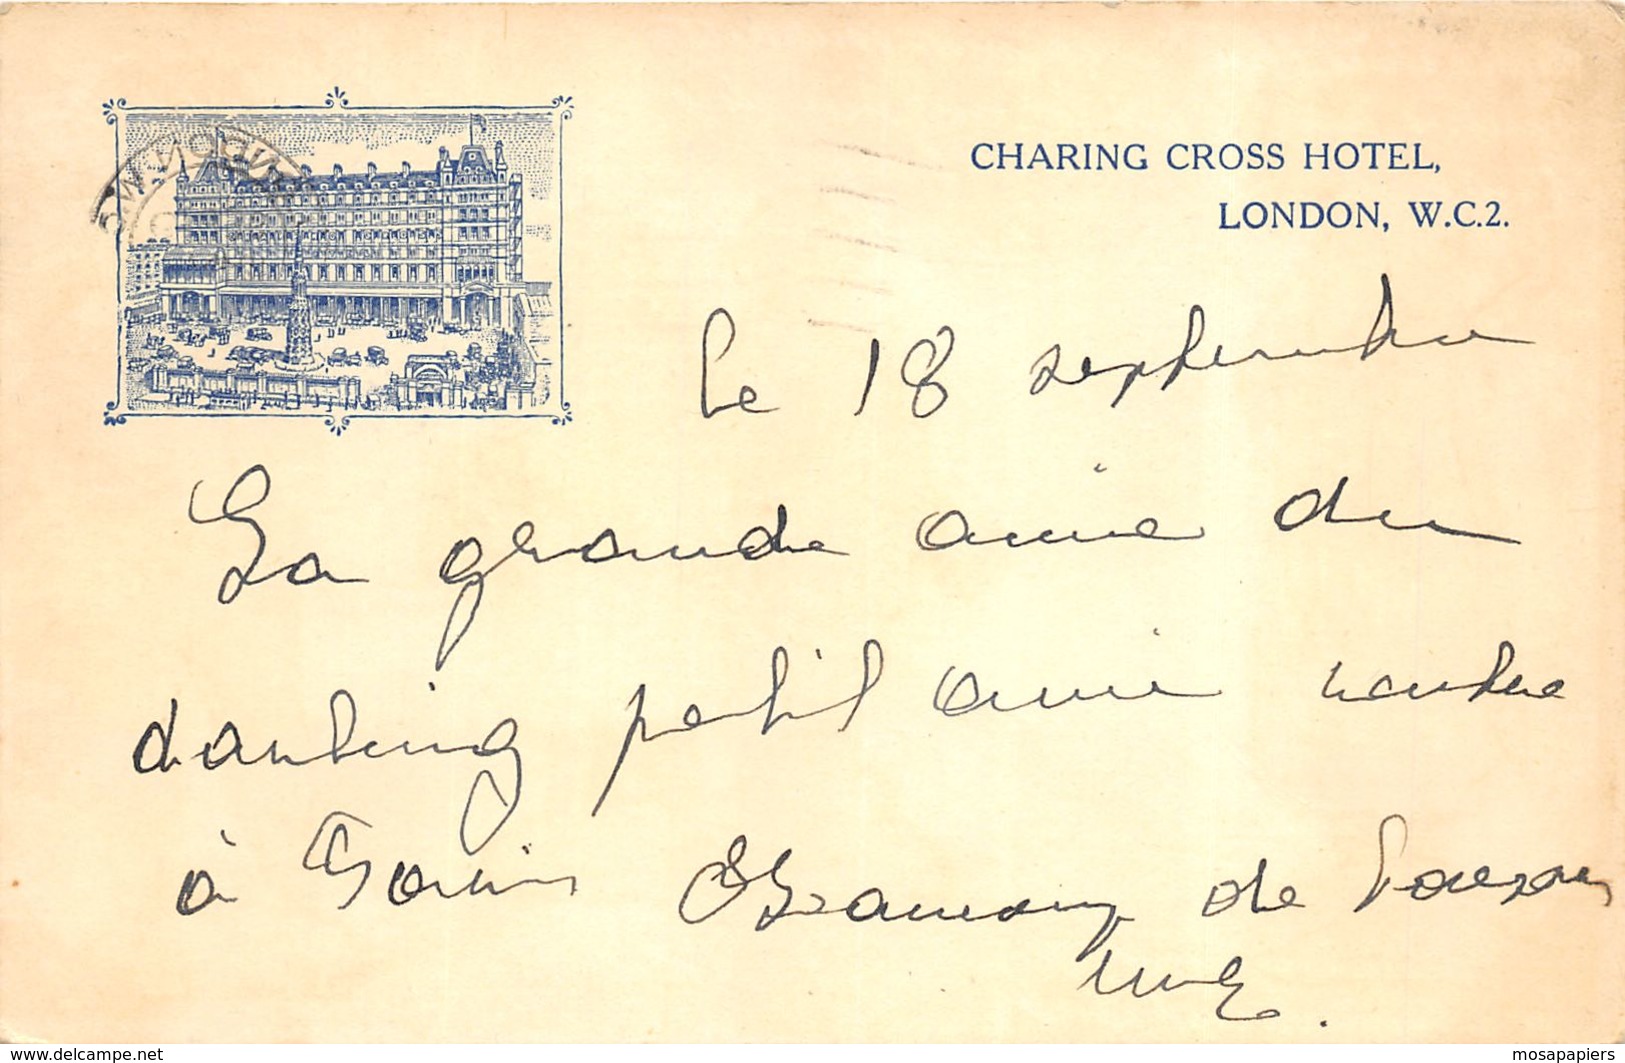 CHARING CROSS HOTEL,
LONDON, W.C.2.
le 18 septembre
La grande amie du
darling petit ami rentre
à Paris
de
www.delcampe.net
mosapapiers